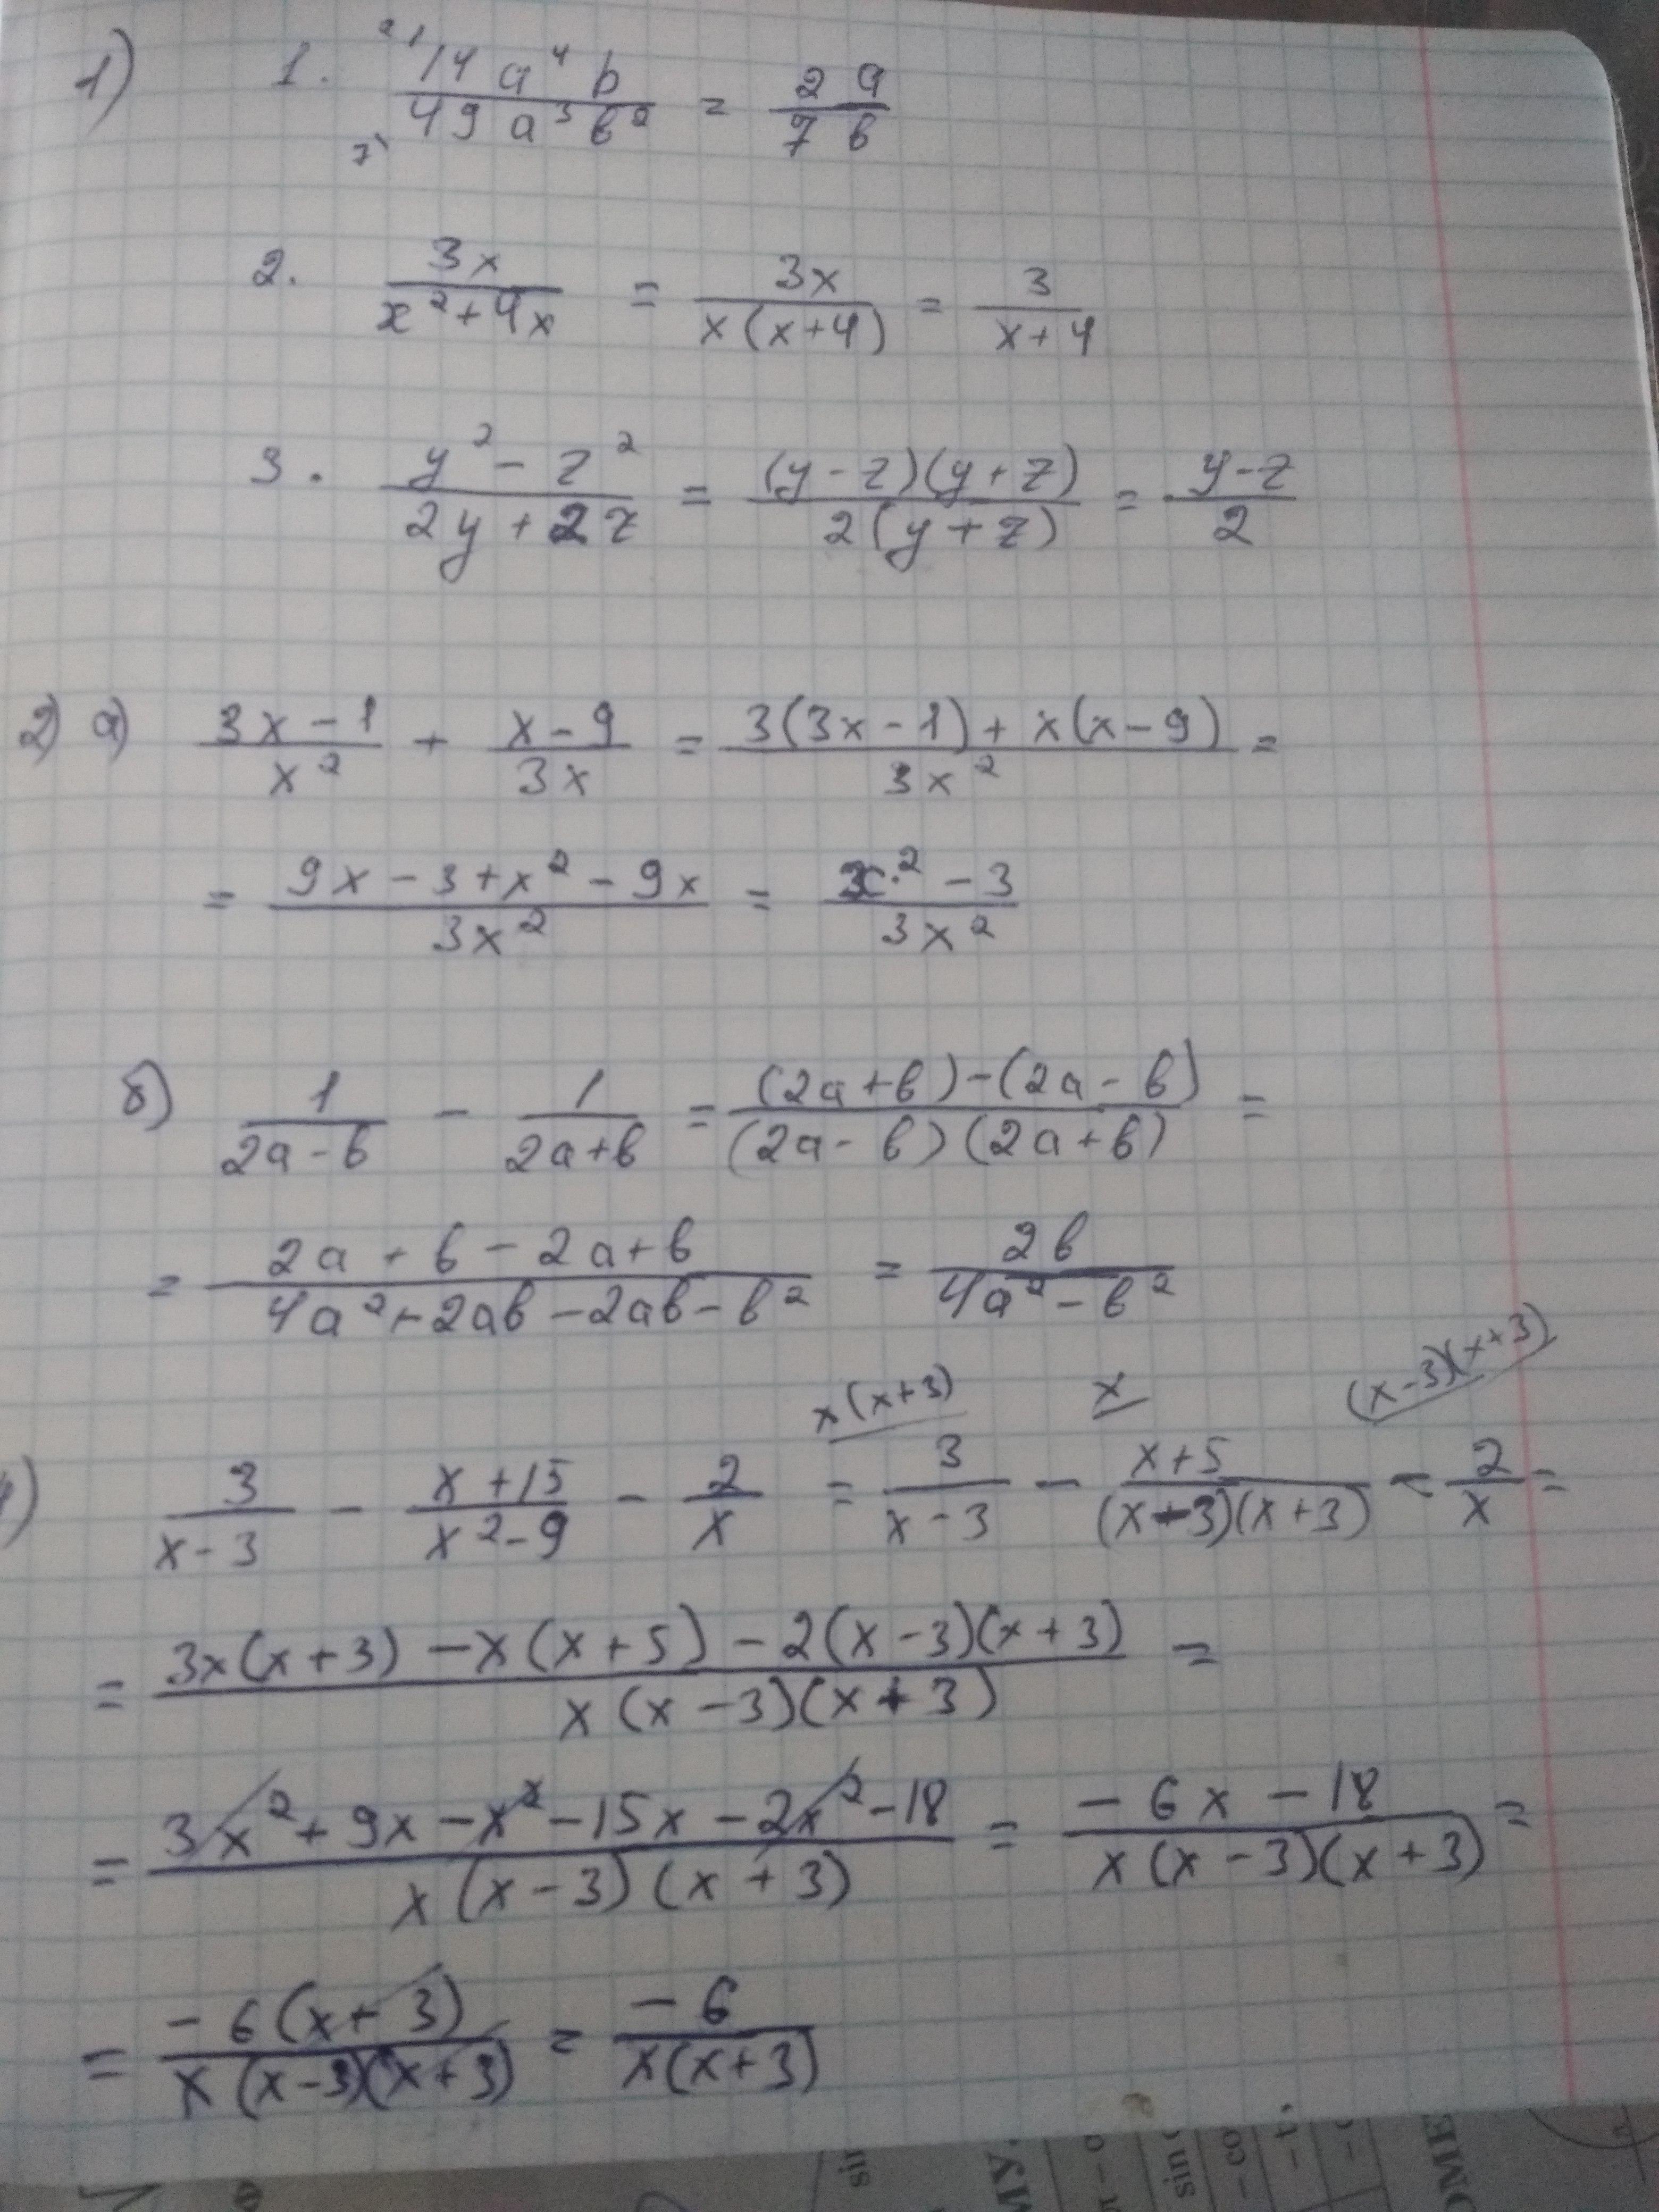 1) 1. 14a⁴b / 49a³b² = 2a / 7b
2 1
7
2. 3x / x²+4x = 3x / x(x+4) = 3 / x+4
3. y²-z² / 2y+2z = (y-z)(y+z) / 2(y+z) = y-z / 2
2) а) 3x-1 / x² + x-9 / 3x = 3(3x-1)+x(x-9) / 3x² =
= 9x-3+x²-9x / 3x² = x²-3 / 3x²
б) 1 / 2a-b - 1 / 2a+b = (2a+b)-(2a-b) / (2a-b)(2a+b) =
= 2a+b-2a+b / 4a²+2ab-2ab-b² = 2b / 4a²-b²
x(x+3) x (x-3)(x+3)
) 3 / x-3 - x+15 / x²-9 - 2 / x = 3 / x-3 - x+5 / (x-3)(x+3) - 2 / x =
= 3x(x+3)-x(x+5)-2(x-3)(x+3) / x(x-3)(x+3) =
= 3x²+9x-x²-15x-2x²-18 / x(x-3)(x+3) = -6x-18 / x(x-3)(x+3) =
= -6(x+3) / x(x-3)(x+3) = -6 / x(x+3)
sin